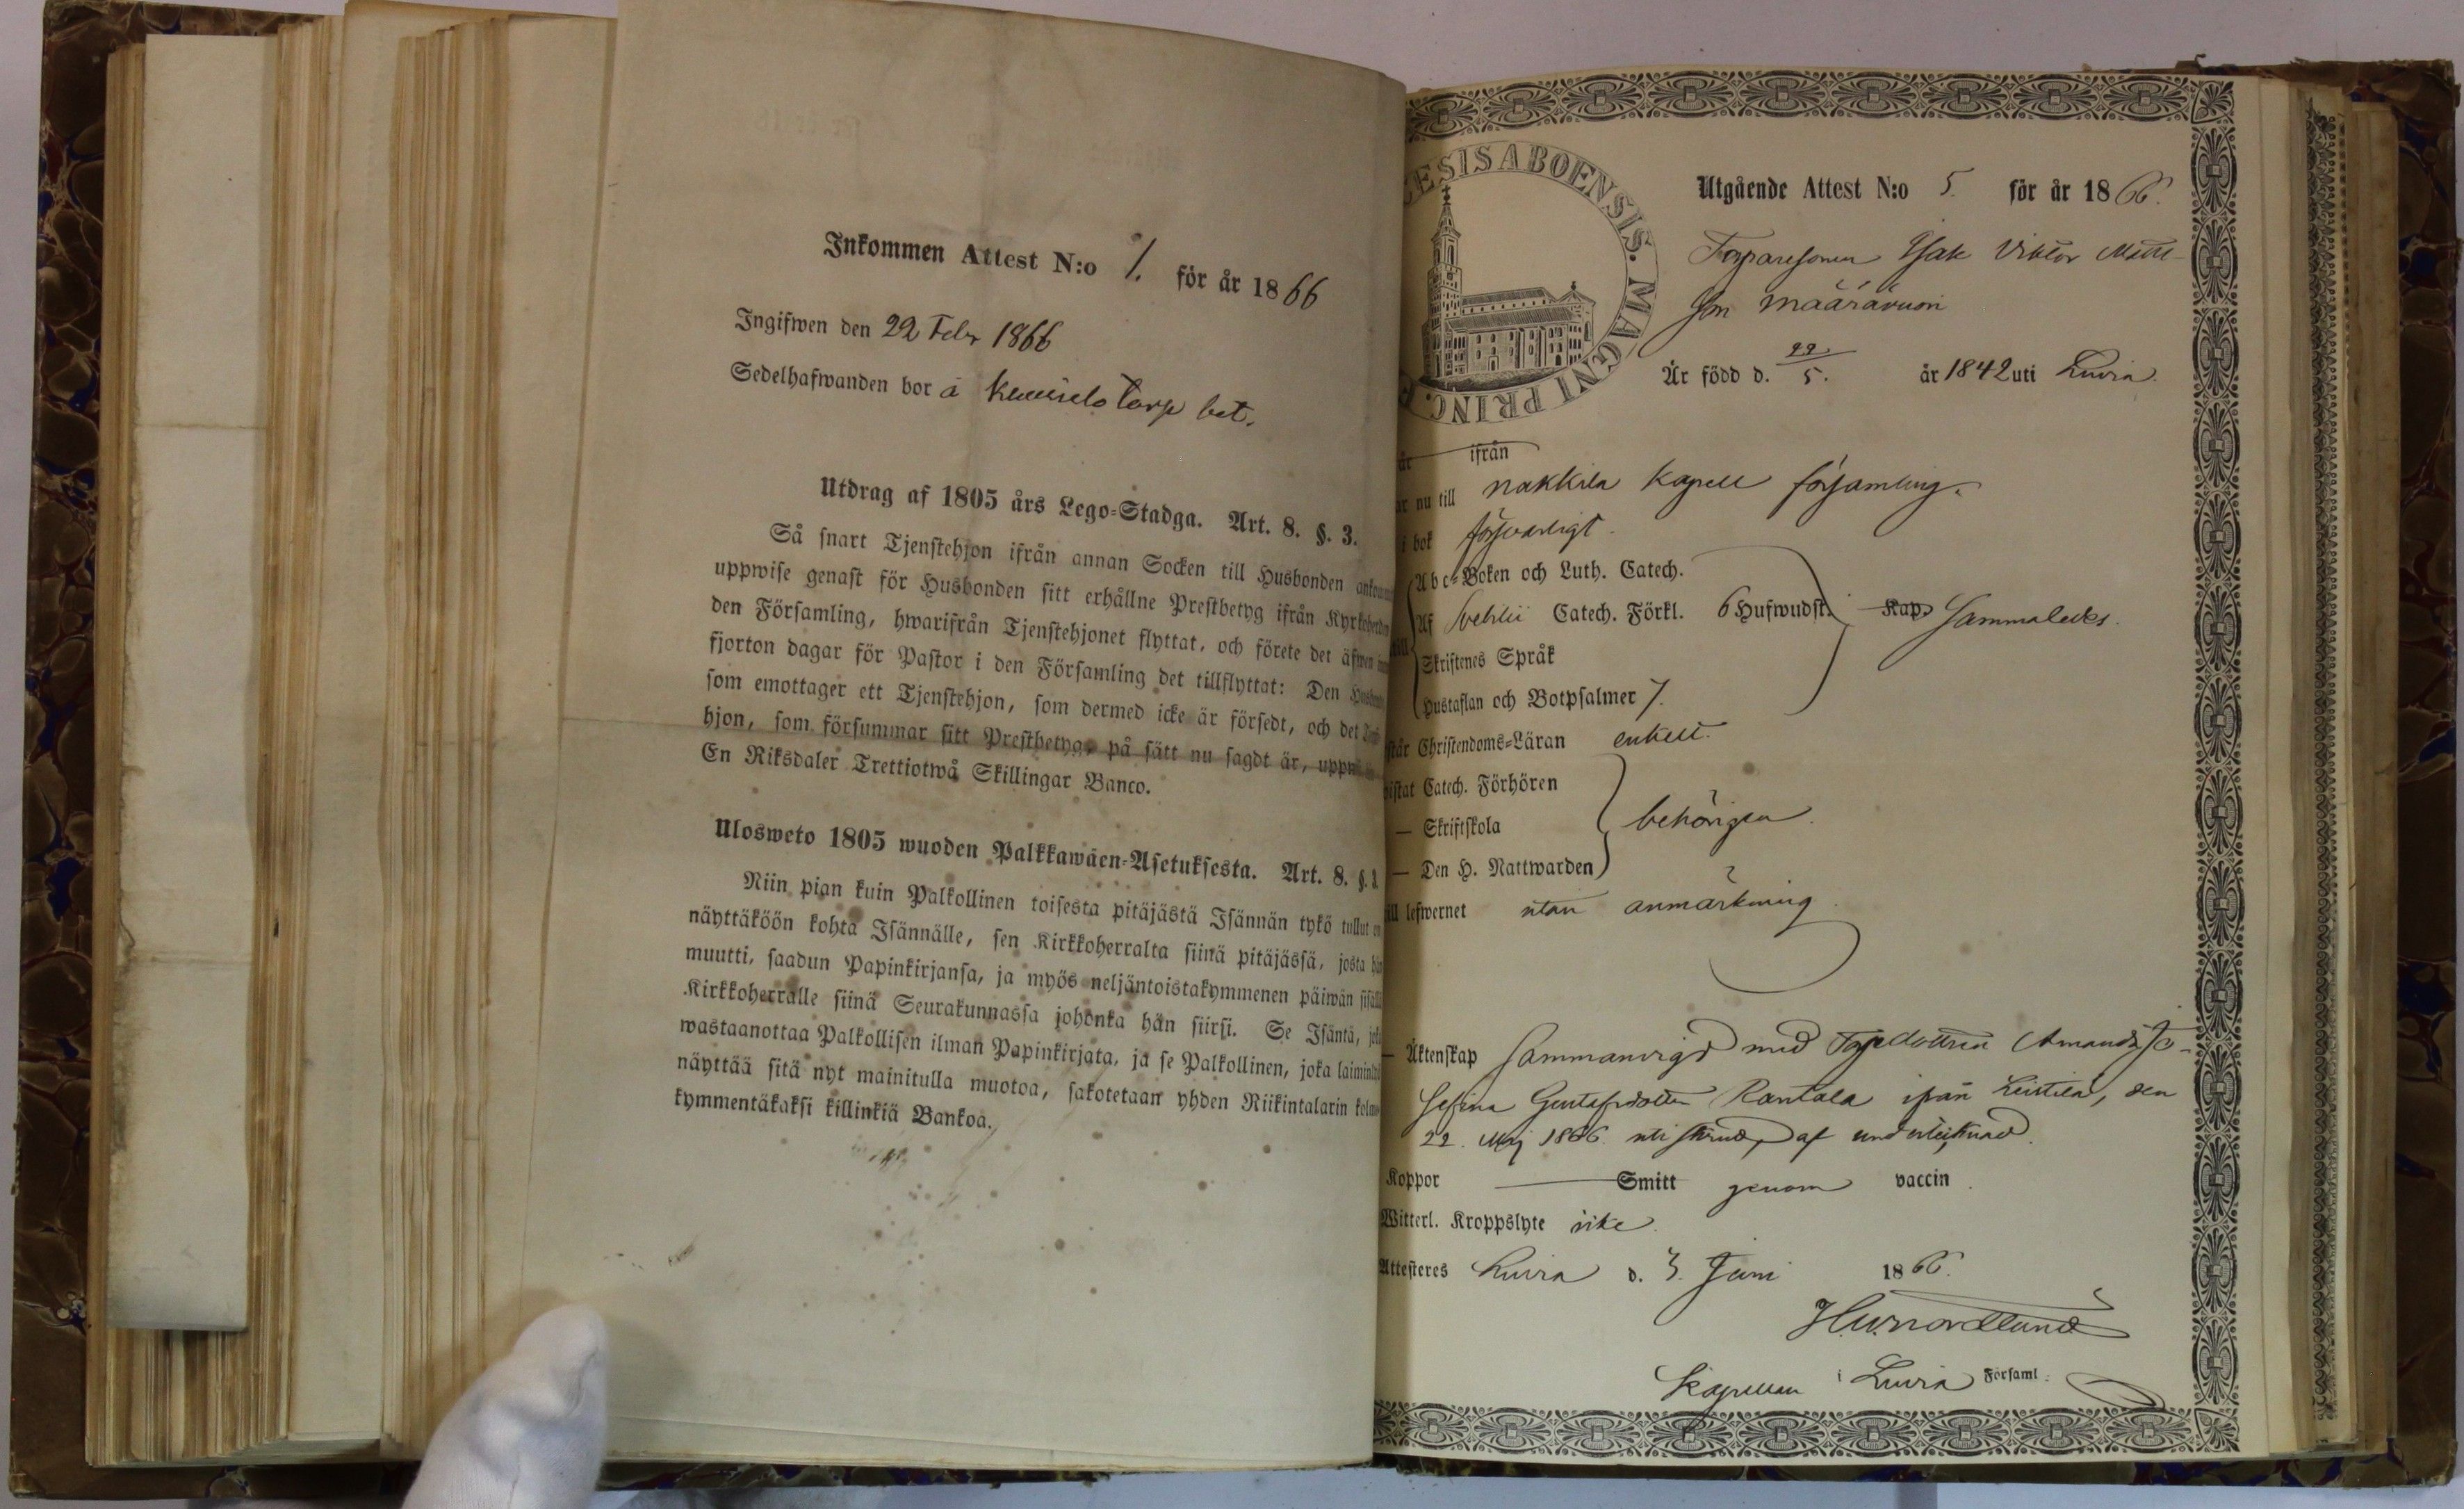 Inkommen Attest N:o 1. för år 1866
Ingifwen den 22 Febr 1866
Sedelhafwanden bor å torp bet.
Utdrag af 1805 års Lego-Stadga. Art. 8. §. 3.
Så snart Tjenstehjon ifrån annan Socken till Husbonden
uppwise genast för Husbonden sitt erhållne Prestbetyg ifrån
den Församling, hwarifrån Tjenstehjonet flyttat, och förete det äfwen
fjorton dagar för Pastor i den Församling det tillflyttat: Den
som emottager ett Tjenstehjon, som dermed icke är försedt, och det
hjon, som försummar sitt Prestbetyg, på sätt nu sagdt är,
En Riksdaler Trettiotwå Skillingar Banco.
Ulosweto 1805 wuoden Palkkawäen-Asetuksesta. Art. 8. §. 3.
Niin pian kuin Palkollinen toisesta pitäjästä Isännän tykö tullut on
näyttäköön kohta Isännälle, sen Kirkkoherralta siinä pitäjässä, josta
muutti, saadun Papinkirjansa, ja myös neljäntoistakymmenen päiwän
Kirkkoherralle siinä Seurakunnassa johonka hän siirsi. Se Isäntä,
wastaanottaa Palkollisen ilman Papinkirjata, ja se Palkollinen, joka
näyttää sitä nyt mainitulla muotoa, sakotetaan yhden Riikintalarin
kymmentäkaksi killinkiä Bankoa.
ESIS ABOENSIS. MAGNI PRINC.
Utgående Attest N:o 5. för år 1866.
Torparesonen Isak Viktor Matts-
son Määrävuori
Är född d. 22/5. år 1842 uti Luvia.
ifrån
nu till Nakkila Kapell församling.
i bok försvarligt.
Abc-Boken och Luth. Catech.
Af Svebilii Catech. Förkl. 6 Hufwudst. Kap. Sammaledes.
Skriftenes Språk
Hustaflan och Botpsalmer 7.
står Christendoms-Läran enkelt.
wistat Catech. Förhören
— Skriftskola behörigen.
— Den H. Nattwarden
till lefwernet utan anmärkning.
— Äktenskap Sammanvigd med Torpdottren Amanda Jo-
sefina Gustafsdotter Rantala ifrån Leistilä, den
22. Maj 1866. uti af undertecknad.
Koppor Smitt genom vaccin.
Witterl. Kroppslyte icke.
Attesteres Luvia d. 3. Juni 1866.
H.W. Nordlund
Kapellan i Luvia Församl: